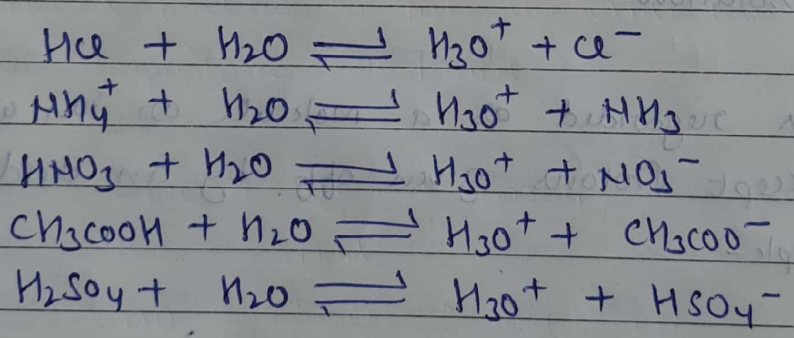 HCl + H2O ⇌ H3O+ + Cl-
NH4+ + H2O ⇌ H3O+ + NH3
HNO3 + H2O ⇌ H3O+ + NO3-
CH3COOH + H2O ⇌ H3O+ + CH3COO-
H2SO4 + H2O ⇌ H3O+ + HSO4-